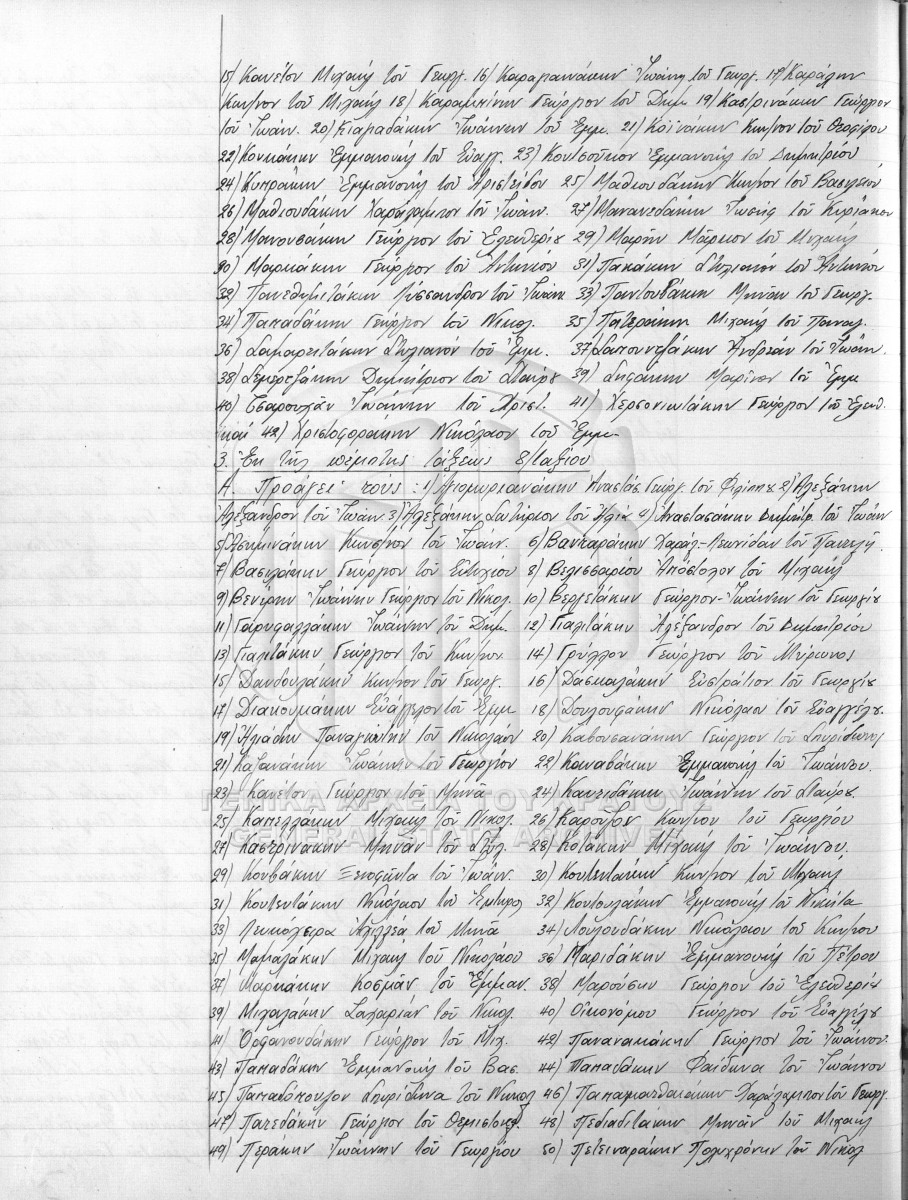 15) Κανέτον Μιχαήλ τοῦ Γεωργ. 16) Καραγιαννάκην Ἰωάνν. τοῦ Γεωργ. 17) Καράλην
Κων/νον τοῦ Μιχαήλ 18) Καραμπίνην Γεώργιον τοῦ Δημ. 19) Καστρινάκην Γεώργιον
τοῦ Ἰωάν. 20) Κιαγαδάκην Ἰωάννην τοῦ Ἐμμ. 21) Κοϊνάκην Κων/νον τοῦ Θεοφίλου
22) Κονιάκην Ἐμμανουήλ τοῦ Εὐαγγ. 23) Κουτσούκον Ἐμμανουήλ τοῦ Δημητρίου
24) Κυπράκην Ἐμμανουήλ τοῦ Ἀριστείδου 25) Μαθιουδάκην Κων/νον τοῦ Βασιλείου
26) Μαθιουδάκην Χαράλαμπον τοῦ Ἰωάν. 27) Μανανεδάκην Ἰωσήφ τοῦ Κυριάκου
28) Μανουσάκην Γεώργιον τοῦ Ἐλευθερίου 29) Μαρῆν Μάρκον τοῦ Μιχαήλ
30) Μαρκάκην Γεώργιον τοῦ Ἀντωνίου 31) Πακάκην Στυλιανόν τοῦ Ἀντωνίου
32) Πανεθυμιτάκην Λύσσανδρον τοῦ Ἰωάν. 33) Παντουβάκην Μηνᾶν τοῦ Γεωργ.
34) Παπαδάκην Γεώργιον τοῦ Νικολ. 35) Πατεράκην Μιχαήλ τοῦ Παναγ.
36) Σαμαρειτάκην Στυλιανόν τοῦ Ἐμμ. 37) Σαπουντζάκην Ἀνδρέαν τοῦ Ἰωάν.
38) Σεμερτζάκην Δημήτριον τοῦ Σταύρου 39) Σηφάκην Μαρῖνον τοῦ Ἐμμ
40) Τσαρουχᾶν Ἰωάννην τοῦ Χριστ. 41) Χερσονιωτάκην Γεώργιον τοῦ Ἐλευθ.
καί 42) Χριστοφοράκην Νικόλαον τοῦ Ἐμμ.
3. Ἐκ τῆς πέμπτης τάξεως 8/ταξίου
Α. Προάγει τούς: 1) Ἀναστάσ. Γεωργ. τοῦ Φιλίππου 2) Ἀλεξάκην
Ἀλέξανδρον τοῦ Ἰωάν. 3) Ἀλεξάκην Σωτήριον τοῦ Ἠλία 4) Ἀναστασάκην Δημήτρ. τοῦ Ἰωάν
5) Ἀσημινάκην Κων/νον τοῦ Ἰωάν. 6) Βαμπαράκην Χαράλ-Λεωνίδαν τοῦ Παντελῆ.
7) Βασιλάκην Γεώργιον τοῦ Εὐτυχίου 8) Βελισσαρίου Ἀπόστολον τοῦ Μιχαήλ
9) Βενέρην Ἰωάννην Γεώργιον τοῦ Νικολ. 10) Βεργετάκην Γεώργιον-Ἰωάννην τοῦ Γεωργίου
11) Γαρυφαλλάκην Ἰωάννην τοῦ Δημ. 12) Γιαλιτάκην Ἀλέξανδρον τοῦ Δημητρίου
13) Γιαλιτάκην Γεώργιον τοῦ Κων/νου 14) Γρύλλον Γεώργιον τοῦ Μύρωνος
15) Δανδουλάκην Κων/νον τοῦ Γεωργ. 16) Δασκαλάκην Εὐστράτιον τοῦ Γεωργίου
17) Διακουμάκην Εὐάγγελον τοῦ Ἐμμ. 18) Δουλουφάκην Νικόλαον τοῦ Εὐαγγέλου.
19) Ἠλιάδην Παναγιώτην τοῦ Νικολάου 20) Καβουσανάκην Γεώργιον τοῦ Σπυρίδωνος
21) Καζανάκην Ἰωάννην τοῦ Γεωργίου 22) Καναβάκην Ἐμμανουήλ τοῦ Ἰωάννου.
23) Κανέτον Γεώργιον τοῦ Μηνᾶ 24) Κανειδάκην Ἰωάννην τοῦ Σταύρου.
25) Καπελλάκην Μιχαήλ τοῦ Νικολ. 26) Καροῦζον Κων/νον τοῦ Γεωργίου
27) Καστρινάκην Μηνᾶν τοῦ Στυλ. 28) Κοτάκην Μιχαήλ τοῦ Ἰωάννου.
29) Κουβάκην Ξενοφῶντα τοῦ Ἰωάν. 30) Κουτεντάκην Κων/νον τοῦ Μιχαήλ
31) Κουτεντάκην Νικόλαον τοῦ 32) Κουτουλάκην Ἐμμανουήλ τοῦ Νικήτα
33) Ἀχιλλέα τοῦ Μηνᾶ 34) Λουλουδάκην Νικόλαον τοῦ Κων/νου
35) Μαμαλάκην Μιχαήλ τοῦ Νικολάου 36) Μαριδάκην Ἐμμανουήλ τοῦ Πέτρου
37) Μαρκάκην Κοσμᾶν τοῦ Ἐμμαν. 38) Μαρούσην Γεώργιον τοῦ Ἐλευθερίου
39) Μιχαλάκην Ζαχαρίαν τοῦ Νικολ. 40) Οἰκονόμου Γεώργιον τοῦ Εὐαγγέλου
41) Ὀργανουδάκην Γεώργιον τοῦ Μιχ. 42) Παναναμάκην Γεώργιον τοῦ Ἰωάννου.
43) Παπαδάκην Ἐμμανουήλ τοῦ Βασ. 44) Παπαδάκην Φαίδωνα τοῦ Ἰωάννου
45) Παπαδόπουλον Σπυρίδωνα τοῦ Νικολ. 46) Παπαματθαιάκην Χαράλαμπον τοῦ Γεωργ.
47) Πατεδάκην Γεώργιον τοῦ Θεμιστοκλ. 48) Πεδιαδιτάκην Μηνᾶν τοῦ Μιχαήλ
49) Περάκην Ἰωάννην τοῦ Γεωργίου 50) Πετειναράκην Πολυχρόνην τοῦ Νικολ
ΓΕΝΙΚΑ ΑΡΧΕΙΑ ΤΟΥ ΚΡΑΤΟΥΣ
GENERAL STATE ARCHIVES